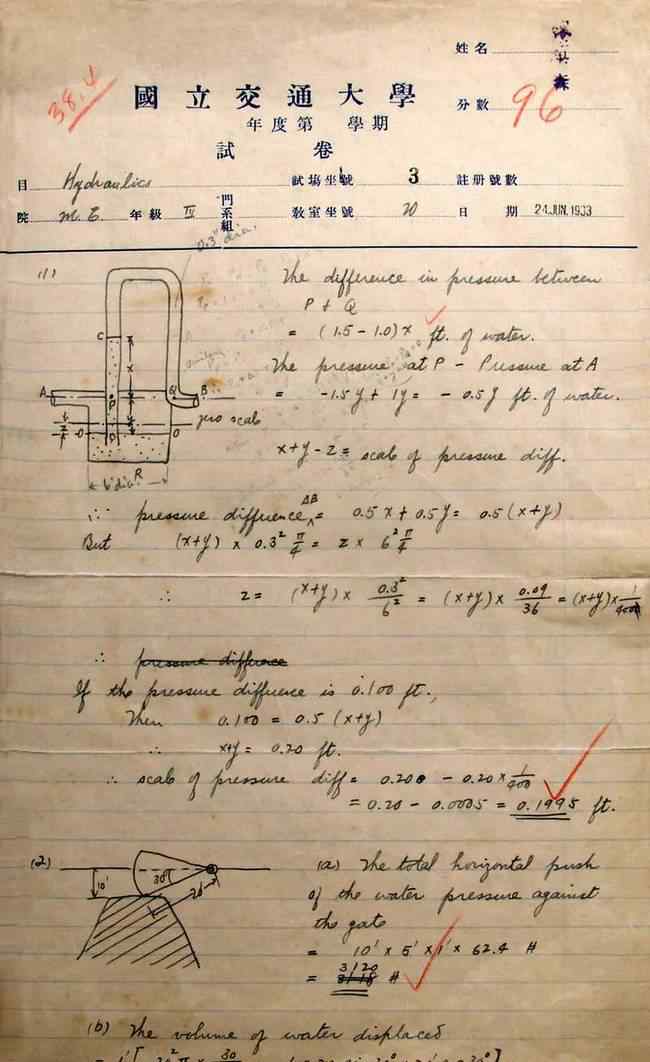 姓名
國立交通大學
38.4
分數 96
年度第 學期
試卷
目 Hydraulics 試塲坐號 3 註册號數
院 M.E. 年級 IV 門系組 教室坐號 20 日期 24.JUN.1933
0.3" dia.
(1) The difference in pressure between
P + Q
= (1.5 - 1.0) x ft. of water.
C
x
The pressure at P - Pressure at A
A P Q B
= -1.5 y + 1y = - 0.5 y ft. of water.
y
zero scale
z O O
x+y-z = scale of pressure diff.
R
6" dia.
∵ pressure difference AB = 0.5 x + 0.5 y = 0.5 (x+y)
But (x+y) x 0.3² π/4 = z x 6² π/4
∴ z = (x+y) x 0.3²/6² = (x+y) x 0.09/36 = (x+y) x 1/400
∴ pressure difference
If the pressure difference is 0.100 ft.,
Then 0.100 = 0.5 (x+y)
∴ x+y = 0.20 ft.
∴ scale of pressure diff = 0.200 - 0.20 x 1/400
= 0.20 - 0.0005 = 0.1995 ft.
(2) (a) The total horizontal push
10' 30° 20'
of the water pressure against
the gate
= 10' x 5' x 1' x 62.4 #
= 3120 #
(b) The volume of water displaced